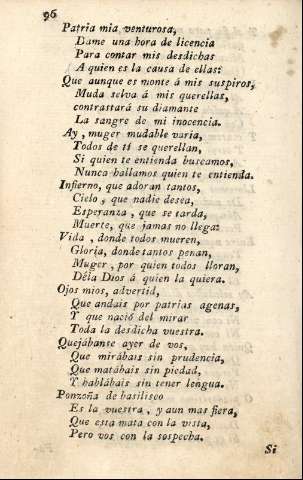 96
Patria mia venturosa,
Dame una hora de licencia
Para contar mis desdichas
A quien es la causa de ellas:
Que aunque es monte á mis suspiros,
Muda selva á mis querellas,
contrastará su diamante
La sangre de mi inocencia.
Ay, muger mudable varia,
Todos de tí se querellan,
Si quien te entienda buscamos,
Nunca hallamos quien te entienda.
Infierno, que adoran tantos,
Cielo, que nadie desea,
Esperanza, que se tarda,
Muerte, que jamas no llega:
Vida, donde todos mueren,
Gloria, donde tantos penan,
Muger, por quien todos lloran,
Déla Dios á quien la quiera.
Ojos mios, advertid,
Que andais por patrias agenas,
Y que nació del mirar
Toda la desdicha vuestra.
Quejábanse ayer de vos,
Que mirábais sin prudencia,
Que matábais sin piedad,
Y hablábais sin tener lengua.
Ponzoña de basilisco
Es la vuestra, y aun mas fiera,
Que esta mata con la vista,
Pero vos con la sospecha.
Si